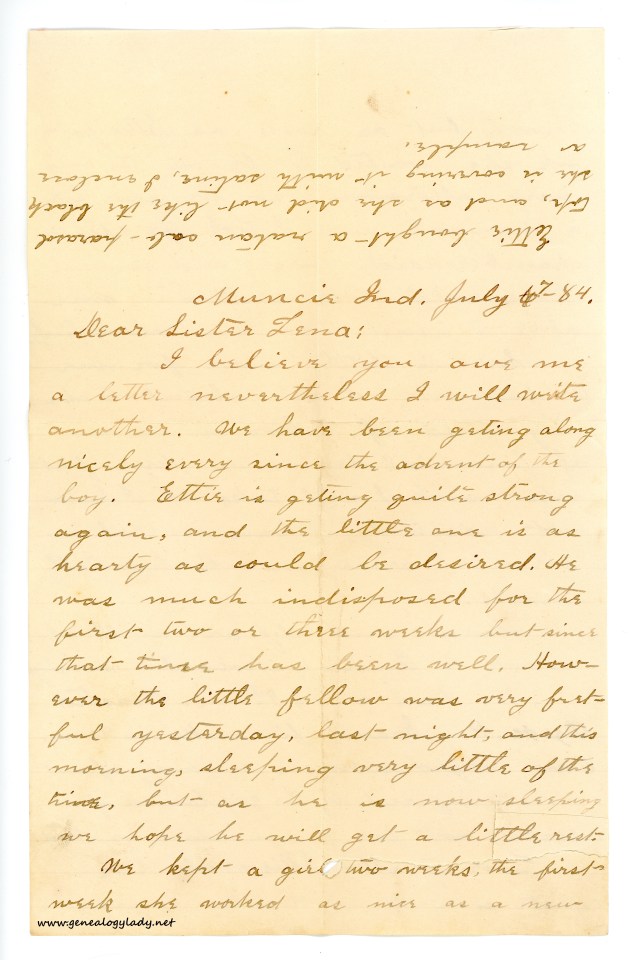 Ettie bought a ratan cab-parasol
top, and as she did not like the black
she is covering it with satine, I enclose
a sample.
Muncie Ind. July 7-84.
Dear Sister Lena:
I believe you owe me
a letter nevertheless I will write
another. We have been geting along
nicely every since the advent of the
boy. Ettie is geting quite strong
again, and the little one is as
hearty as could be desired. He
was much indisposed for the
first two or three weeks but since
that time has been well. How-
ever the little fellow was very fret-
ful yesterday, last night, and this
morning, sleeping very little of the
time, but as he is now sleeping
we hope he will get a little rest.
We kept a girl two weeks, the first
week she worked as nice as a new
www.genealogylady.net